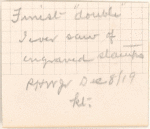 Finest "double"
I ever saw of
engraved stamps
PHWJr Dec 8/19